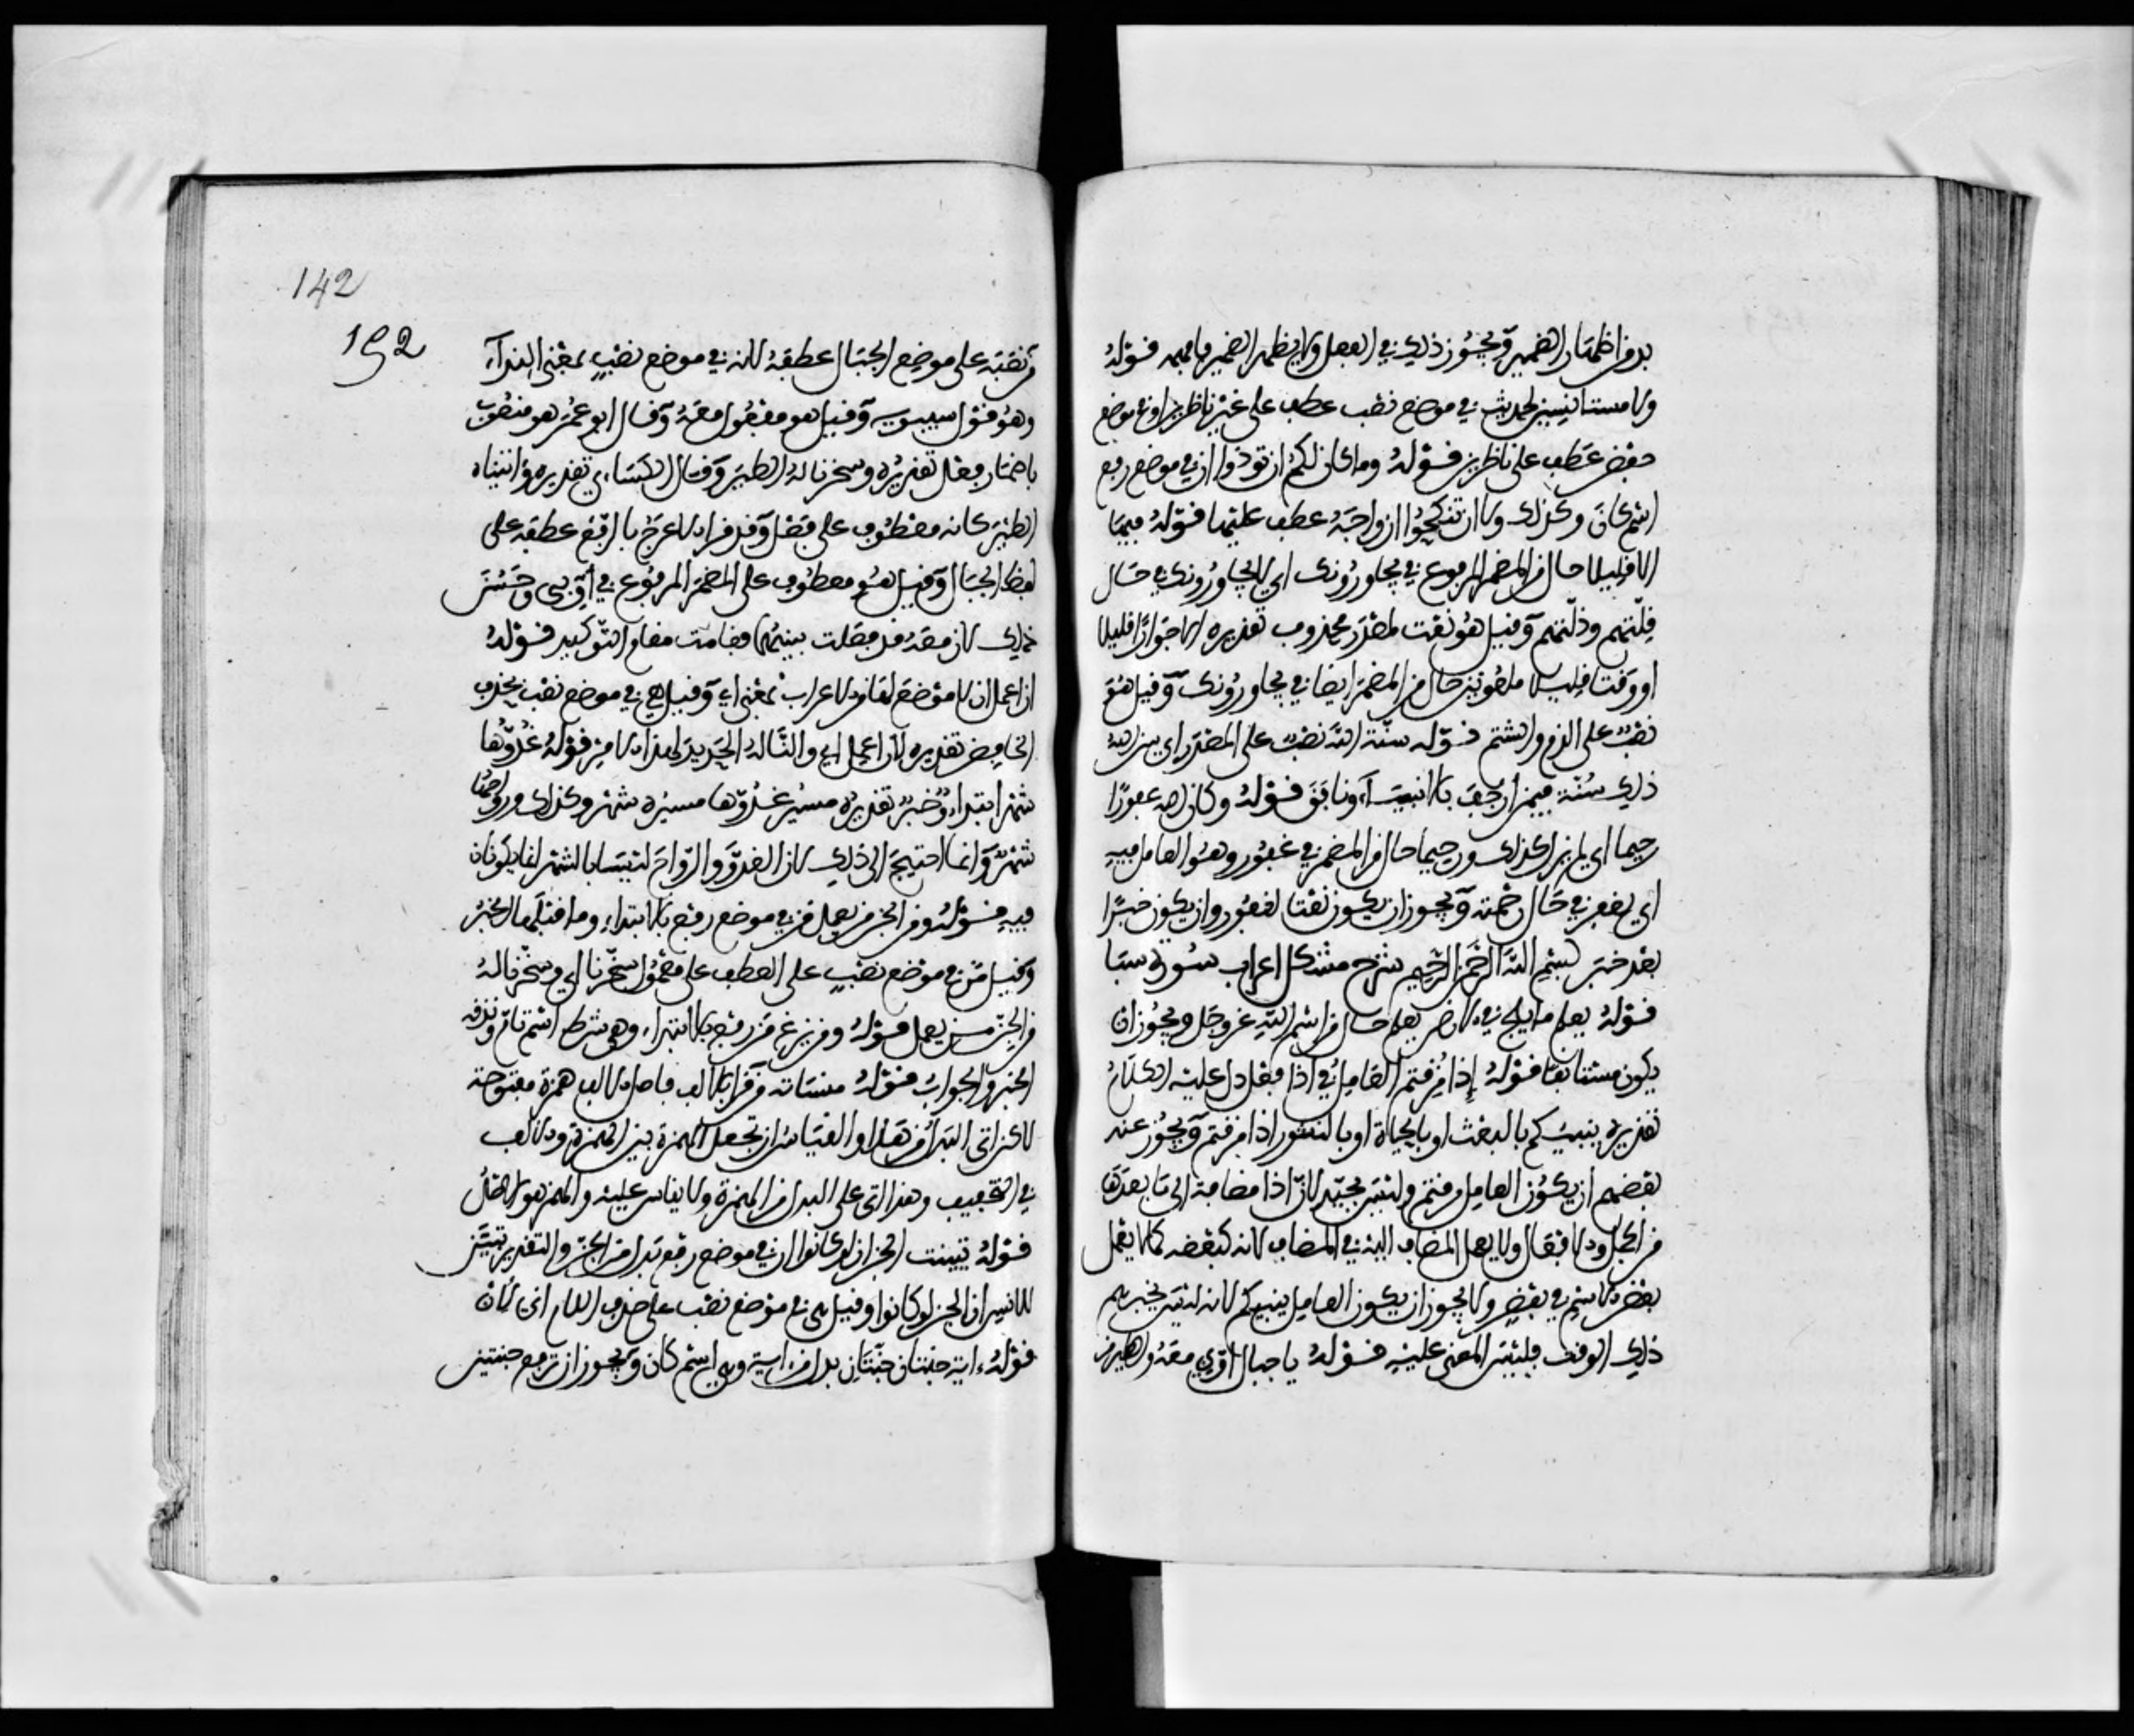 بد من اظهار الضمير ويجوز ذلك في الفعل ولا يظهر الضمير فافهمه قوله
ولا مستانسين لحديث في موضع نصب عطف على غير ناظرين او في موضع
خفض عطف على ناظرين قوله وما كان لكم ان توذوا ان في موضع رفع
اسم كان وكذلك ولا ان تنكحوا ازواجه عطف عليها قوله فيها
الا قليلا حال من المضمر المرفوع في يجاورونك اي لا يجاورونك في حال
قلتهم وذلتهم وقيل هو نعت لمصدر محذوف تقديره الا جوارا قليلا
او وقتا قليلا ملعونين حال من المضمر ايضا في يجاورونك وقيل هو
نصب على الذم والشتم قوله سنة الله نصب على المصدر اي سن الله
ذلك سنة فيمن ارجف بالانبياء ونافق قوله وكان الله غفورا
رحيما اي لم يزل كذلك ورحيما حال من المضمر في غفور وهو العامل فيه
اي يغفر في حال رحمته ويجوز ان يكون نعتا لغفور وان يكون خبرا
بعد خبر بسم الله الرحمن الرحيم شرح مشكل اعراب سورة سبا
قوله يعلم ما يلج في الارض يعلم حال من اسم الله عز وجل ويجوز ان
يكون مستانفا قوله إذا مزقتم العامل في اذا فعل دل عليه الكلام
تقديره ينبيكم بالبعث او بالحياة او بالنشور اذا مزقتم ويجوز عند
بعضهم ان يكون العامل مزقتم وليس بجيد لان اذا مضافة الى ما بعدها
من الجمل والافعال ولا يعمل المضاف اليه في المضاف لانه كبعضه كما لا يعمل
بعض الاسم في بعض ولا يجوز ان يكون العامل ينبيكم لانه ليس يخبرهم
ذلك الوقت فليس المعنى عليه قوله يا جبال اوبي معه والطير من
142
192
نصبه على موضع الجبال عطفه لانه في موضع نصب بمعنى النداء
وهو قول سيبويه وقيل هو مفعول معه وقال ابو عمر هو منصوب
باضمار فعل تقديره وسخرنا له الطير وقال الكساءي تقديره واتيناه
الطير كانه معطوف على فضل وقد قرا الاعرج بالرفع عطفه على
لفظ الجبال وقيل هو معطوف على المضمر المرفوع في اوبي وحسن
ذلك لان معه قد فصلت بينهما فقامت مقام التوكيد قوله
ان اعمل ان لا موضع لها من الاعراب بمعنى اي وقيل هي في موضع نصب بحذف
الخافض تقديره لان اعمل اي والنا له الحديد لهذا الامر قوله غدوها
شهر ابتداء وخبر تقديره مسير غدوها مسيرة شهر وكذلك ورواحها
شهر وانما احتيج الى ذلك لان الغدو والرواح ليسا بالشهر انما يكونان
فيه قوله ومن الجن من يعمل من في موضع رفع بالابتداء وما قبلها الخبر
وقيل من في موضع نصب على العطف على معمول سخرنا اي وسخرنا له
من الجن من يعمل قوله ومن يزغ من رفع بالابتداء وهي شرط اسم تام ونذقه
الخبر والجواب قوله منساته من قرا بالالف فاصل الالف همزة مفتوحة
لاكن اتى البدل من هذا والقياس ان تجعل الهمزة بين الهمزة والالف
في التخفيف وهذا اتى على البدل من الهمزة ولا يقاس عليه والهمز هو الاصل
قوله تبينت الجن ان لو كانوا ان في موضع رفع بدل من الجن والتقدير تبين
للانس ان الجن لو كانوا وقيل هي في موضع نصب على حذف اللام اي لان
قوله اية جنتان جنتان بدل من اية وهي اسم كان ويجوز ان ترفع جنتين